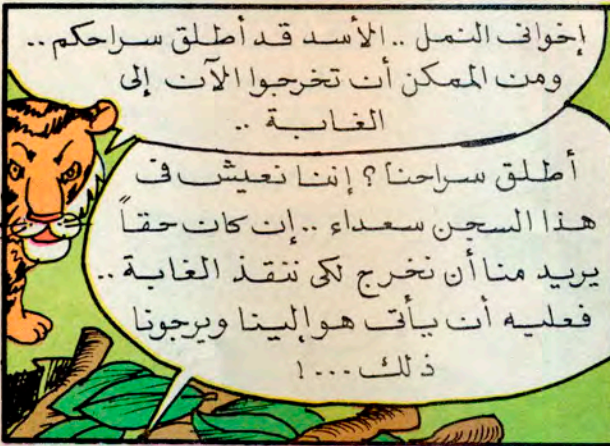 إخوانى النمل .. الأسد قد أطلق سراحكم ..
ومن الممكن أن تخرجوا الآن إلى
الغابة ..
أطلق سراحنا ؟ إننا نعيش فى
هذا السجن سعداء .. إن كان حقاً
يريد منا أن نخرج لكى ننقذ الغابة ..
فعليه أن يأتى هو إلينا ويرجونا
ذلك ... !